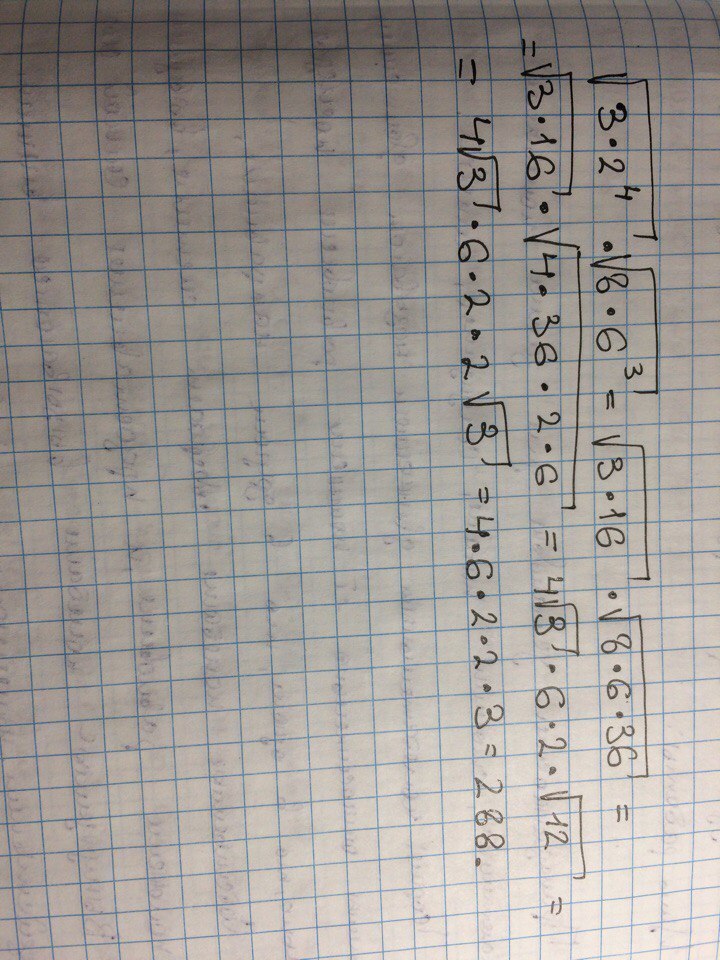 √(3·2⁴) · √(8·6³) = √(3·16) · √(8·6·36) =
= √(3·16) · √(4·36·2·6) = 4√3 · 6·2·√12 =
= 4√3 · 6·2·2√3 = 4·6·2·2·3 = 288.